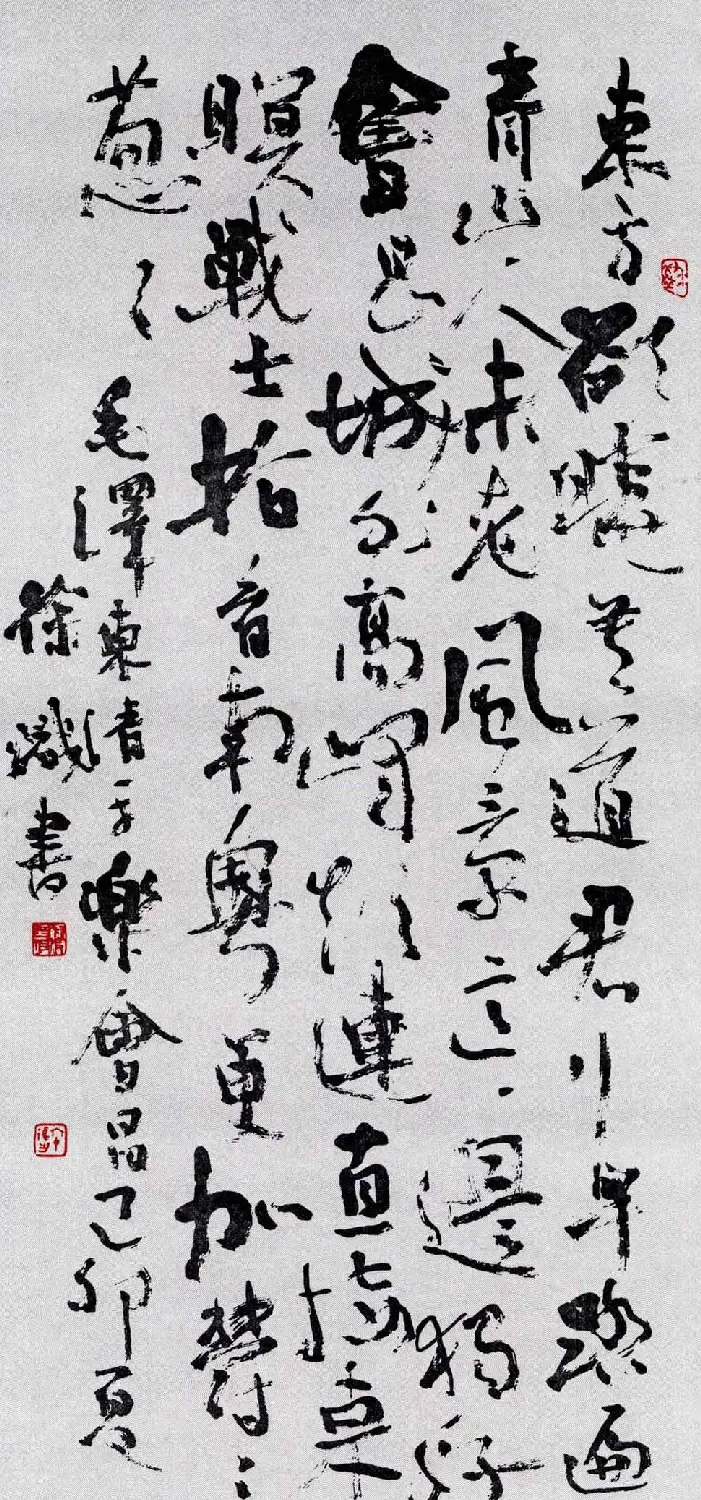 東方欲曉莫道君行早踏遍
青山人未老風景這邊獨好
會昌城外高峰顛連直接東
瞑戰士指看南粵更加鬱〻
蔥〻 毛澤東清平樂會昌己卯夏
徐
書